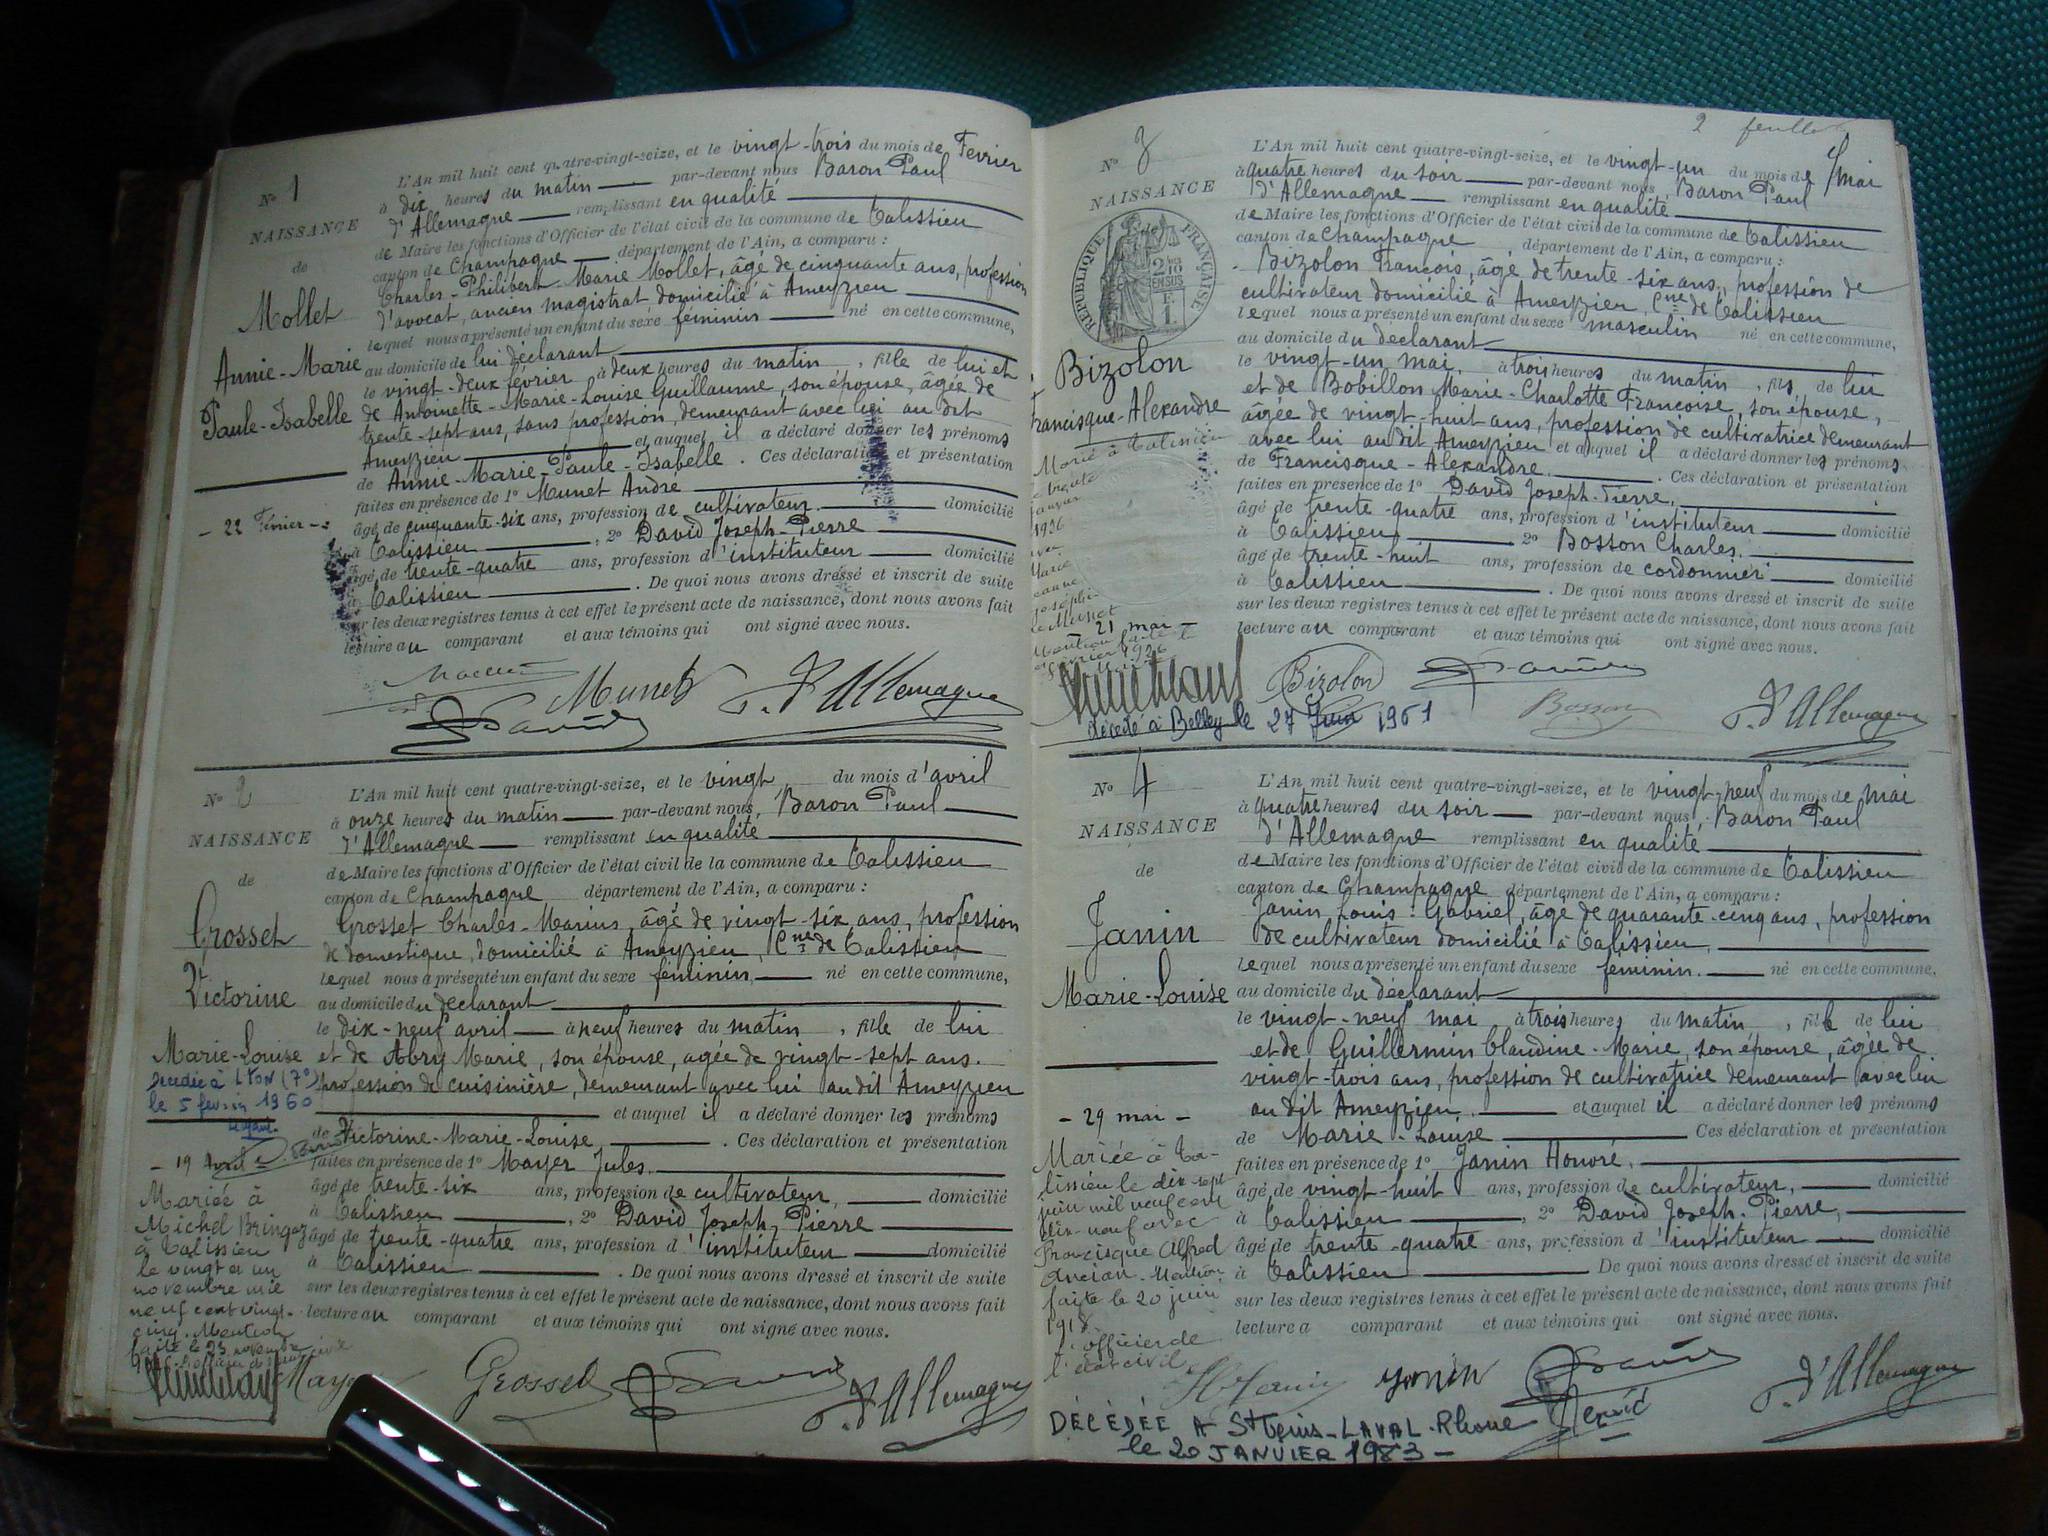 N° 1
NAISSANCE
de
Mollet
Annie-Marie
Paule-Isabelle
- 22 Février -
L'An mil huit cent quatre-vingt-seize, et le vingt-trois du mois de Fevrier
à dix heures du matin par-devant nous Baron Paul
d'Allemagne remplissant en qualité
de Maire les fonctions d'Officier de l'état civil de la commune de Talissieu
canton de Champagne département de l'Ain, a comparu :
Charles-Philibert Marie Mollet, âgé de cinquante ans, profession
d'avocat, ancien magistrat domicilié à Ameyzieu
lequel nous a présenté un enfant du sexe féminin né en cette commune,
au domicile de lui déclarant
le vingt-deux février à deux heures du matin, fille de lui et
de Antoinette-Marie-Louise Guillaume, son épouse, âgée de
trente-sept ans, sans profession, demeurant avec lui au dit
Ameyzieu et auquel il a déclaré donner les prénoms
de Annie-Marie-Paule-Isabelle. Ces déclaration et présentation
faites en présence de 1° Munet André
âgé de cinquante-six ans, profession de cultivateur domicilié
à Talissieu, 2° David Joseph-Pierre
âgé de trente-quatre ans, profession d'instituteur domicilié
à Talissieu. De quoi nous avons dressé et inscrit de suite
sur les deux registres tenus à cet effet le présent acte de naissance, dont nous avons fait
lecture au comparant et aux témoins qui ont signé avec nous.
Munet P. d'Allemagne
David
N° 2
NAISSANCE
de
Grosset
Victorine
Marie-Louise
décédée à LYON (7e)
le 5 février 1960
- 19 Avril -
Mariée à
Michel Bringaz
à Talissieu
le vingt et un
novembre mil
neuf cent vingt-
cinq. Mention
faite le 23 novembre
L'An mil huit cent quatre-vingt-seize, et le vingt du mois d'avril
à onze heures du matin par-devant nous, Baron Paul
d'Allemagne remplissant en qualité
de Maire les fonctions d'Officier de l'état civil de la commune de Talissieu
canton de Champagne département de l'Ain, a comparu :
Grosset Charles-Marius, âgé de vingt-six ans, profession
de domestique, domicilié à Ameyzieu, Cne de Talissieu
lequel nous a présenté un enfant du sexe féminin, né en cette commune,
au domicile du déclarant
le dix-neuf avril à neuf heures du matin, fille de lui
et de Abry Marie, son épouse, agée de vingt-sept ans.
profession de cuisinière, demeurant avec lui au dit Ameyzieu
et auquel il a déclaré donner les prénoms
de Victorine-Marie-Louise. Ces déclaration et présentation
faites en présence de 1° Mayer Jules.
âgé de trente-six ans, profession de cultivateur, domicilié
à Talissieu, 2° David Joseph, Pierre
âgé de trente-quatre ans, profession d'instituteur domicilié
à Talissieu. De quoi nous avons dressé et inscrit de suite
sur les deux registres tenus à cet effet le présent acte de naissance, dont nous avons fait
lecture au comparant et aux témoins qui ont signé avec nous.
Mayer Grosset David P. d'Allemagne
2 feuillet
N° 3
NAISSANCE
RÉPUBLIQUE FRANÇAISE
Bizolon
Francisque-Alexandre
Marié à Talissieu
le trente
janvier
1926
avec
Marie
Jeanne
Joséphi
ne Munet
- 21 mai -
L'An mil huit cent quatre-vingt-seize, et le vingt-un du mois de mai
à quatre heures du soir par-devant nous, Baron Paul
d'Allemagne remplissant en qualité
de Maire les fonctions d'Officier de l'état civil de la commune de Talissieu
canton de Champagne, département de l'Ain, a comparu :
Bizolon François, âgé de trente-six ans, profession de
cultivateur domicilié à Ameyzieu, Cne de Talissieu
lequel nous a présenté un enfant du sexe masculin né en cette commune,
au domicile du déclarant
le vingt-un mai, à trois heures du matin, fils de lui
et de Bobillon Marie-Charlotte Françoise, son épouse,
agée de vingt-huit ans, profession de cultivatrice demeurant
avec lui au dit Ameyzieu et auquel il a déclaré donner les prénoms
de Francisque-Alexandre. Ces déclaration et présentation
faites en présence de 1° David Joseph-Pierre,
âgé de trente-quatre ans, profession d'instituteur domicilié
à Talissieu 2° Bosson Charles.
âgé de trente-huit ans, profession de cordonnier domicilié
à Talissieu. De quoi nous avons dressé et inscrit de suite
sur les deux registres tenus à cet effet le présent acte de naissance, dont nous avons fait
lecture au comparant et aux témoins qui ont signé avec nous.
Bizolon David
Bosson P. d'Allemagne
décédé à Belley le 27 Juin 1961
N° 4
NAISSANCE
de
Janin
Marie-Louise
- 29 mai -
Mariée à Ta-
lissieu le dix-sept
juin mil neuf cent
dix-neuf avec
Francisque Alfred
Ancian. Mention
faite le 20 juin
1918.
l'officier de
l'état civil
L'An mil huit cent quatre-vingt-seize, et le vingt-neuf du mois de mai
à quatre heures du soir par-devant nous, Baron Paul
d'Allemagne remplissant en qualité
de Maire les fonctions d'Officier de l'état civil de la commune de Talissieu
canton de Champagne département de l'Ain, a comparu :
Janin Louis-Gabriel, âgé de quarante-cinq ans, profession
de cultivateur domicilié à Talissieu,
lequel nous a présenté un enfant du sexe féminin. né en cette commune,
au domicile du déclarant
le vingt-neuf mai à trois heures du matin, fille de lui
et de Guillermin Claudine-Marie, son épouse, âgée de
vingt-trois ans, profession de cultivatrice demeurant avec lui
au dit Ameyzieu. et auquel il a déclaré donner les prénoms
de Marie-Louise Ces déclaration et présentation
faites en présence de 1° Janin Honoré,
âgé de vingt-huit ans, profession de cultivateur, domicilié
à Talissieu, 2° David Joseph-Pierre,
âgé de trente-quatre ans, profession d'instituteur domicilié
à Talissieu De quoi nous avons dressé et inscrit de suite
sur les deux registres tenus à cet effet le présent acte de naissance, dont nous avons fait
lecture a comparant et aux témoins qui ont signé avec nous.
Janin David P. d'Allemagne
DÉCÉDÉE A St Genis-LAVAL-Rhone
le 20 JANVIER 1983 -